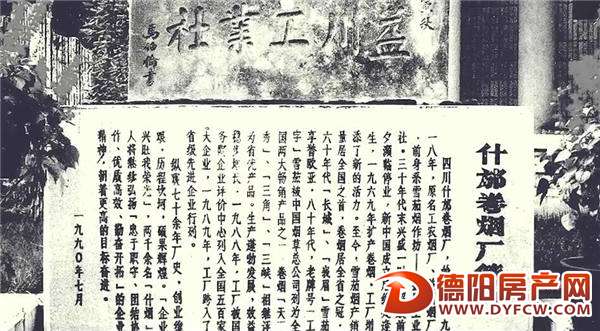 益川工業社
什邡卷烟厂
四川什邡卷烟厂,
一八年,原名工农烟厂
,前身系雪茄烟作坊
社。三十年代末兴盛一
夕濒临停业,新中国成立
生,一九六九年扩产卷烟,工厂增
添了新的活力。至今,雪茄烟产销
量居全国之首,卷烟居全省之冠。
六十年代「长城」、「峨眉」雪茄
享誉欧亚,八十年代,老牌号「工
字」雪茄被中国烟草总公司列为全
国两大畅销产品之一,卷烟「天下
秀」、「三角」、「三峡」相继评
为省优产品。生产蓬勃发展,效益
稳步增长,一九八八年,工厂被国
企业评价中心列入全国五百家
大企业,一九八九年,工厂跨入了
省级先进企业行列。
纵观七十余年厂史,创业维
艰,历程坎坷,硕果辉煌。「企业
兴旺我荣光」,两千余名「什烟」
人将继续弘扬「忠于职守、团结协
作、优质高效、勤奋开拓」的企业
精神,朝着更高的目标奋进。
一九九〇年七月
德阳房产网
WWW.DYFCW.COM